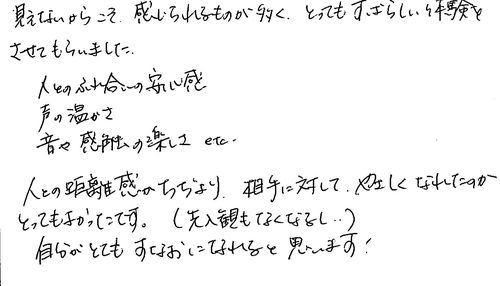 見えないからこそ、感じられるものが多く、とってもすばらしい体験を
させてもらいました。
人とのふれ合いの安心感
声の温かさ
音や感触の楽しさ etc.
人との距離感がちぢまり、相手に対して、やさしくなれたのが
とってもよかったです。（先入観もなくなるし‥）
自分がとてもすなおになれると思います！